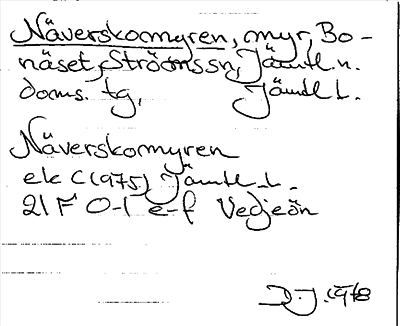 Näverskomyren, myr, Bo-
näset, Ströms sn, Jämtl. n.
doms. tg, Jämtl l.
Näverskomyren
ek C (1975) Jämtl. l.
21 F 0-1 e-f Vedjeön
D.J. 1978